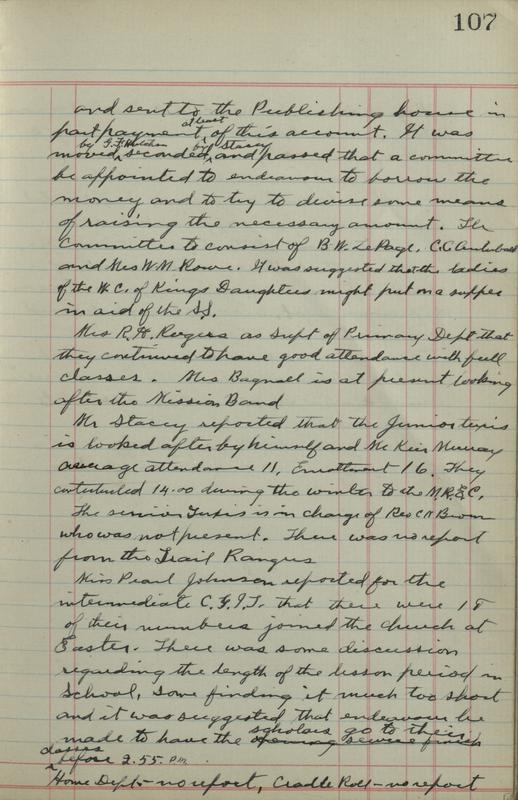 107
and sent to the Publishing house in
part payment at least of this account. It was
moved by G.F. Hutcheson, seconded by Stacey, and passed that a committee
be appointed to endeavour to borrow the
money and to try to devise some means
of raising the necessary amount. The
Committee to consist of B.W. LePage, C.C.
and Mrs W.M. Rowe. It was suggested that the ladies
of the W.C. of Kings Daughters might put on a supper
in aid of the S.S.
Mrs R.H. Rogers as Supt of Primary Dept that
they continued to have good attendance with full
classes. Mrs Bagnall is at present looking
after the Mission Band
Mr Stacey reported that the Junior tuxis
is looked after by himself and Mr Keir Murray
average attendance 11, Enrollment 16. They
contributed 14.00 during the winter to the M.R.E.C.
The senior Tuxis is in charge of Rev C R Brown
who was not present. There was no report
from the Trail Rangers
Miss Pearl Johnson reported for the
intermediate C.G.I.T. that there were 18
of their numbers joined the church at
Easter. There was some discussion
regarding the length of the lesson period in
School, some finding it much too short
and it was suggested that endeavour be
made to have the scholars go to their
classes before 2.55 P.M.
Home Dept - no report, Cradle Roll - no report